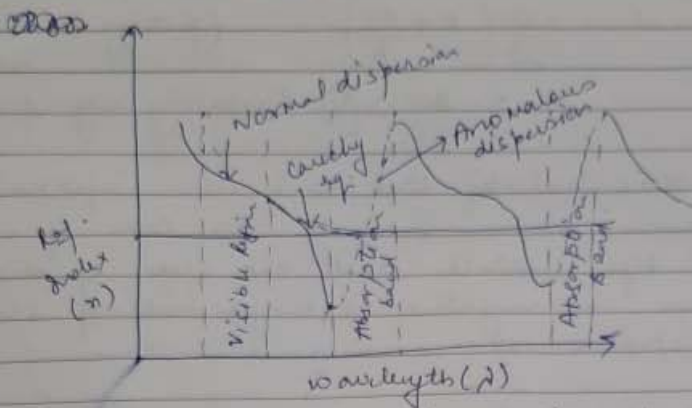 Normal dispersion
Cauchy
eq.
Anomalous
dispersion
Ref.
Index
(n)
Visible Region
Absorption
band
Absorption
band
wavelength (λ)